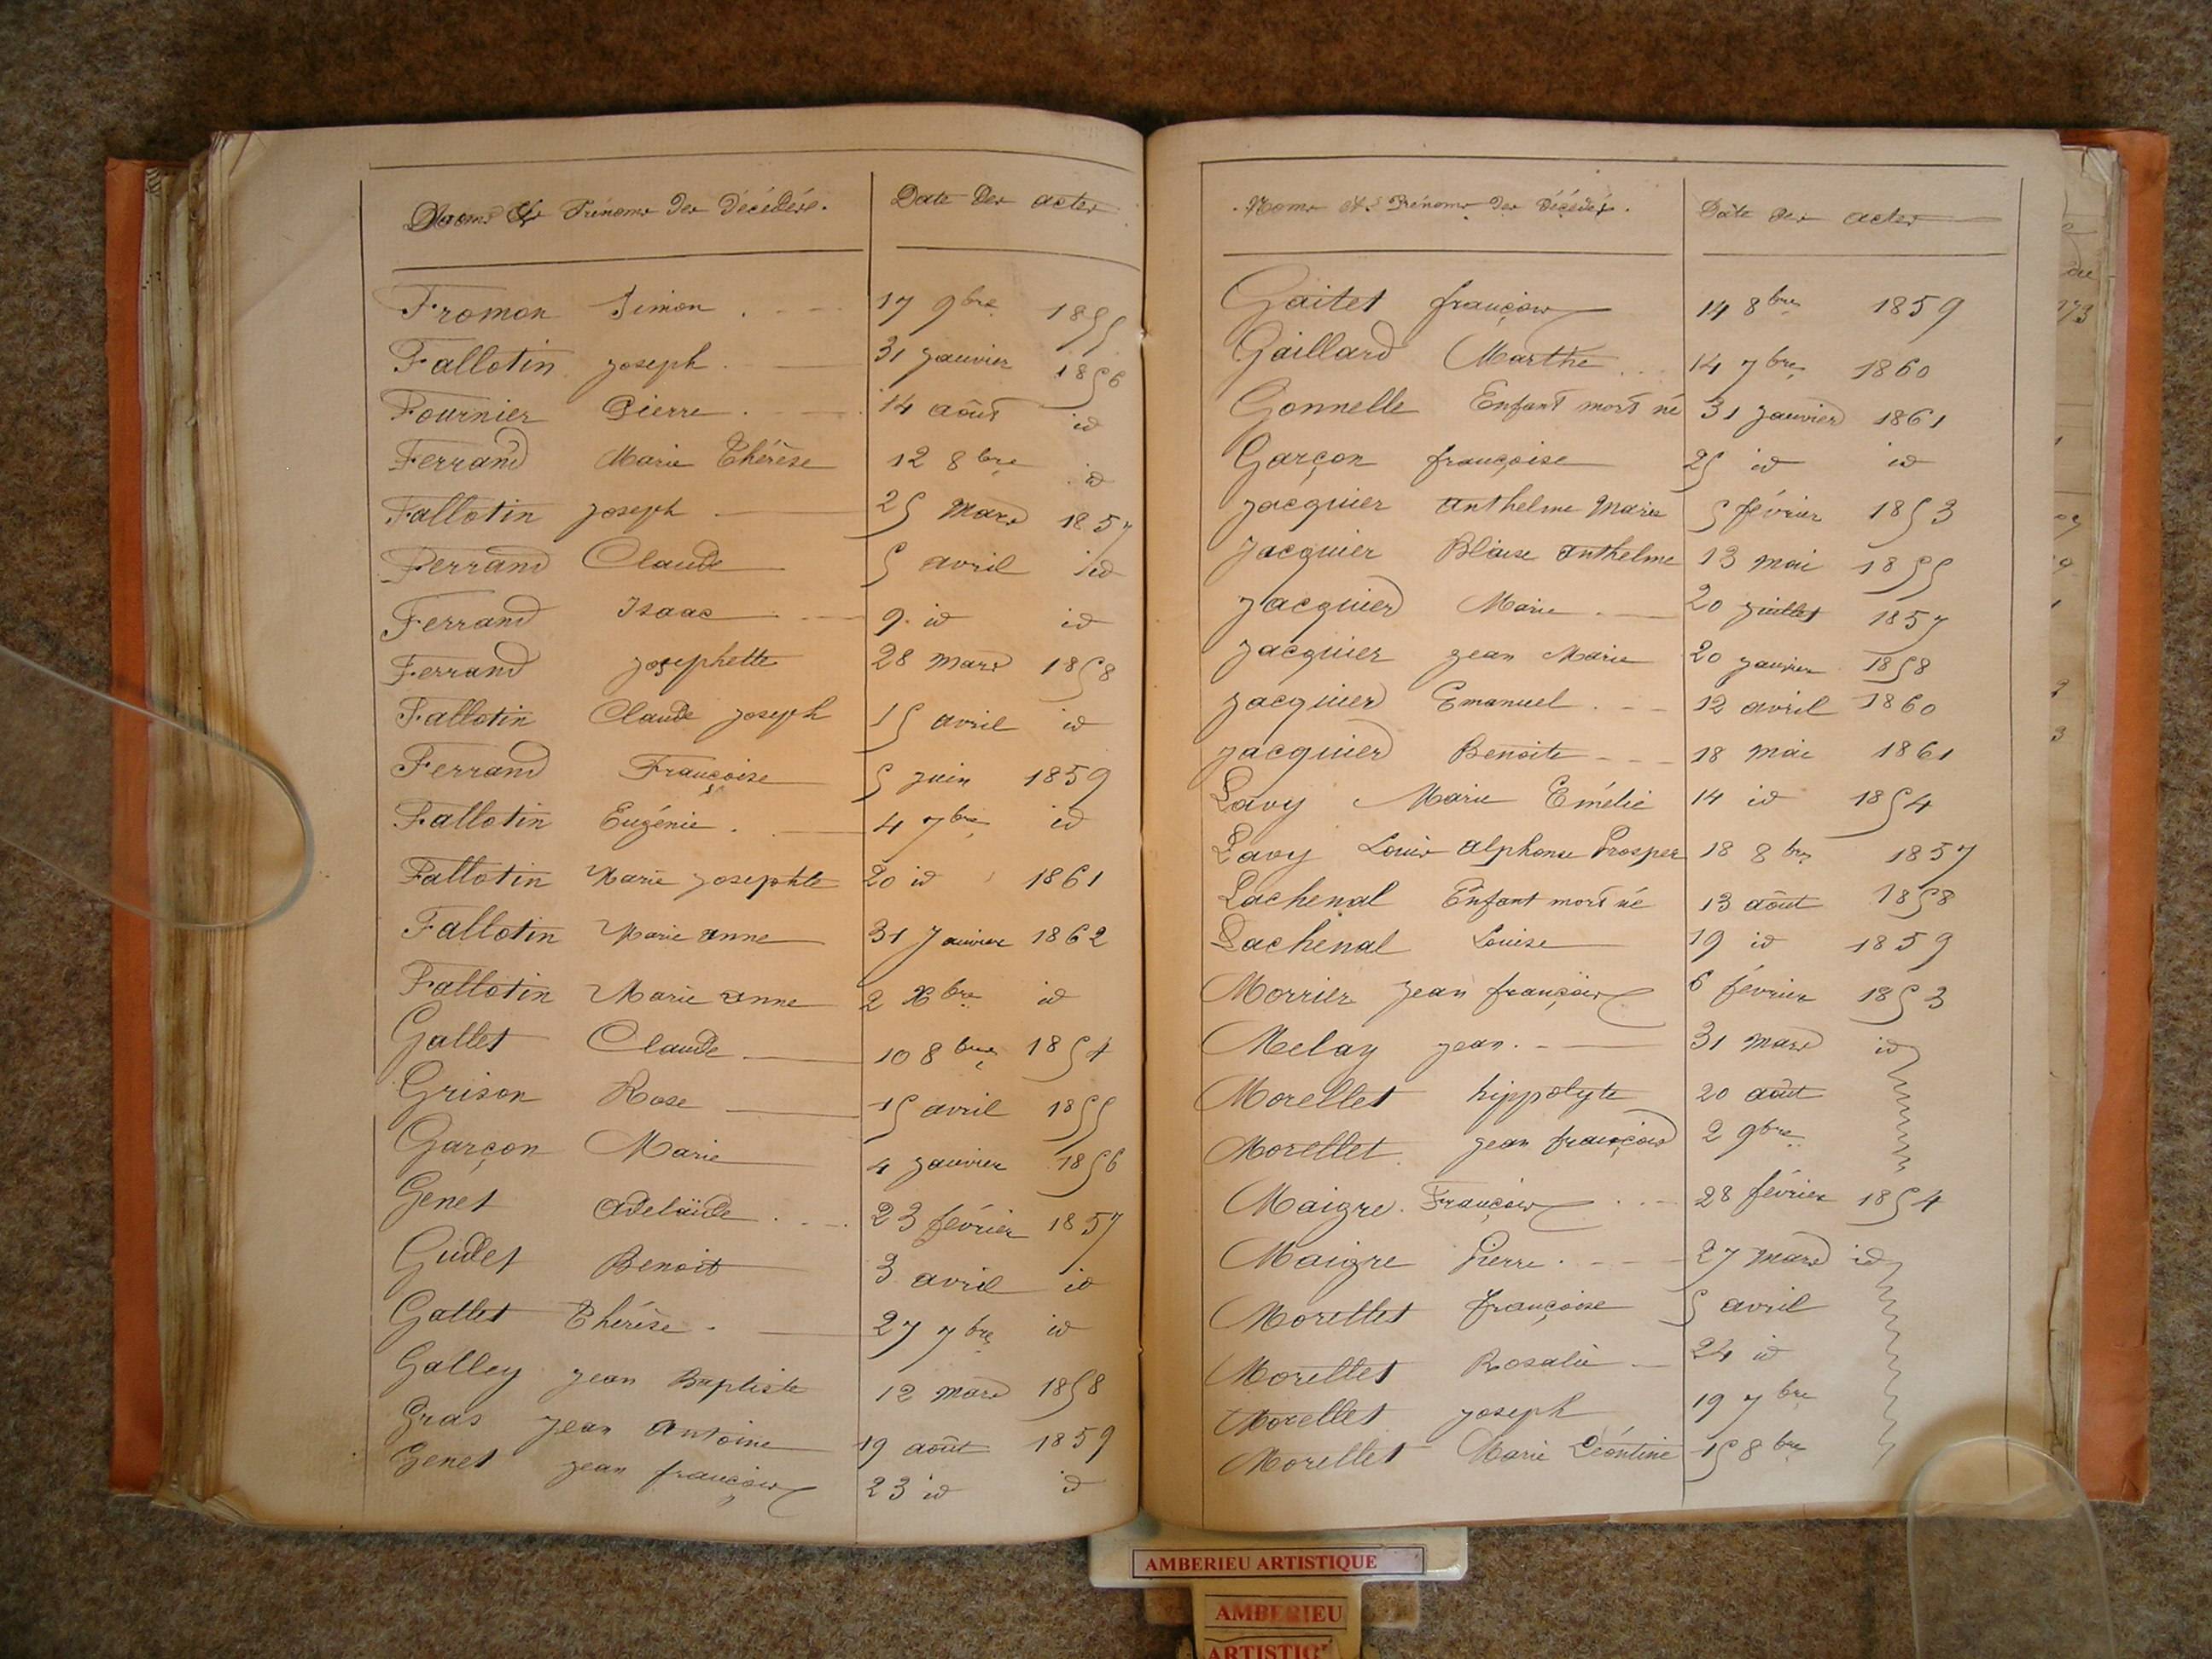 Noms et Prénoms des décédés. Date des actes
Fromon Simon 17 9bre 1855
Fallotin joseph 31 janvier 1856
Fournier Pierre 14 août id
Ferrand Marie Thérèse 12 8bre id
Fallotin joseph 25 Mars 1857
Ferrand Claude 5 avril id
Ferrand Isaac 9 id id
Ferrand josephette 28 mars 1858
Fallotin Claude joseph 15 avril id
Ferrand Françoise 5 juin 1859
Fallotin Eugénie 4 7bre id
Fallotin Marie josephte 20 id 1861
Fallotin Marie anne 31 Janvier 1862
Fallotin Marie anne 2 Xbre id
Gallet Claude 10 8bre 1854
Grison Rose 15 avril 1855
Garçon Marie 4 janvier 1856
Genet Adelaïde 23 février 1857
Gudet Benoit 3 avril id
Gallet Thérèse 27 7bre id
Galley jean Baptiste 12 mars 1858
Gras jean antoine 19 août 1859
Genet jean françois 23 id id
Noms et Prénoms des décédés. Date des actes
Gaitet françois 14 8bre 1859
Gaillard Marthe 14 7bre 1860
Gonnelle Enfant mort né 31 janvier 1861
Garçon françoise 25 id id
Jacquier anthelme Marie 5 février 1853
Jacquier Blaise anthelme 13 mai 1855
Jacquier Marie 20 juillet 1857
Jacquier jean Marie 20 janvier 1858
Jacquier Emanuel 12 avril 1860
Jacquier Benoite 18 mai 1861
Lavy Marie Emélie 14 id 1854
Lavy Louis alphonse Prosper 18 8bre 1857
Lachenal Enfant mort né 13 août 1858
Lachenal Louise 19 id 1859
Morrier jean françois 6 février 1853
Melay jean 31 mars id
Morellet hippolyte 20 août
Morellet jean françois 2 9bre
Maigre François 28 février 1854
Maigre Pierre 27 mars id
Morellet françoise 5 avril
Morellet Rosalie 24 id
Morellet joseph 19 7bre
Morellet Marie Léontine 15 8bre
AMBERIEU ARTISTIQUE
AMBERIEU